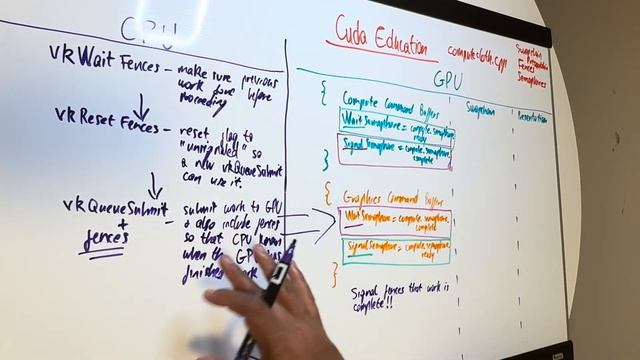 CPU
Cuda Education
computecloth.cpp
Swapchain
Presentation
Fences
Semaphores
vkWaitFences - make sure previous
work done before
proceeding
vkResetFences - reset flag to
"unsignaled" so
a new vkQueueSubmit
can use it.
vkQueueSubmit - submit work to GPU
+
fences
+ also include fences
so that CPU knows
when the GPU has
finished work
GPU
{ Compute Command Buffers
Wait Semaphore = compute.semaphore
ready
Signal Semaphore = compute.semaphore
complete
}
Swapchain
Presentation
{ Graphics Command Buffers
Wait Semaphore = compute.semaphore
complete
Signal Semaphore = compute.semaphore
ready
}
Signal fences that work is
complete!!